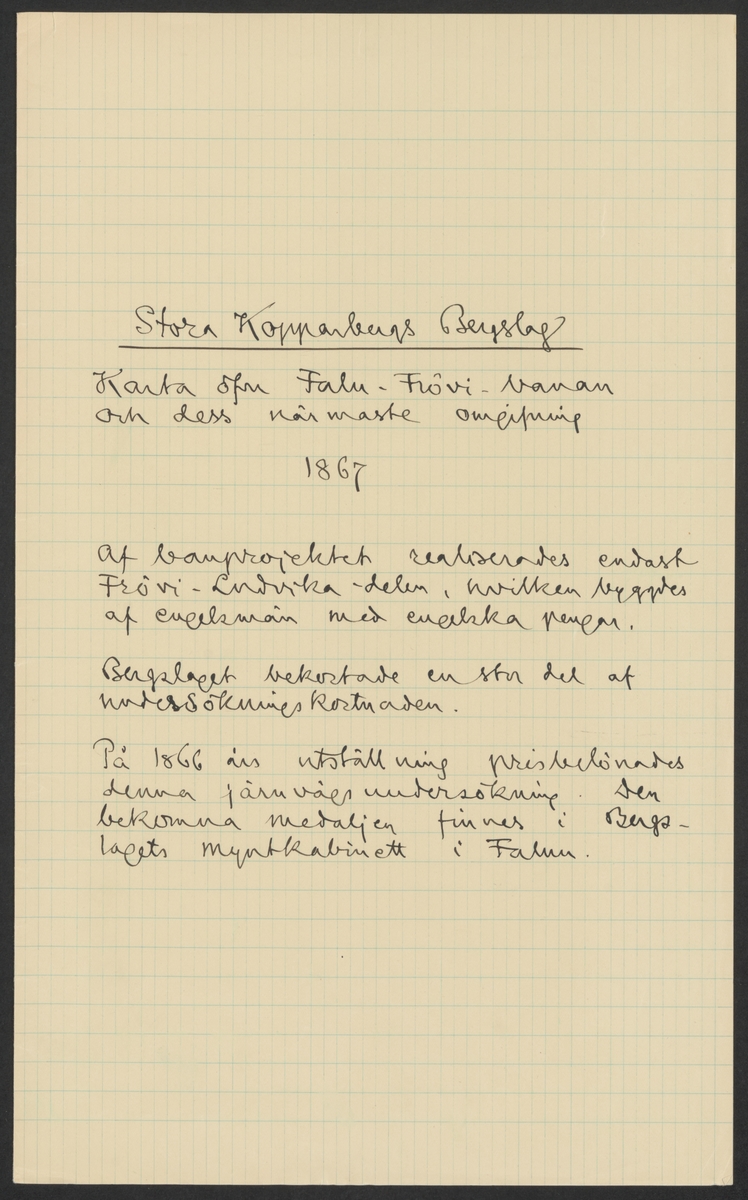 Stora Kopparbergs Bergslag
Karta öfver Falu-Frövi-banan
och dess närmaste omgifning
1867
Af banprojektet realiserades endast
Frövi-Ludvika-delen, hvilken byggdes
af engelsmän med engelska pengar.
Bergslaget bekostade en stor del af
undersökningskostnaden.
På 1866 års utställning prisbelönades
denna järnvägsundersökning. Den
bekomna medaljen finnes i Bergs-
lagets myntkabinett i Falun.